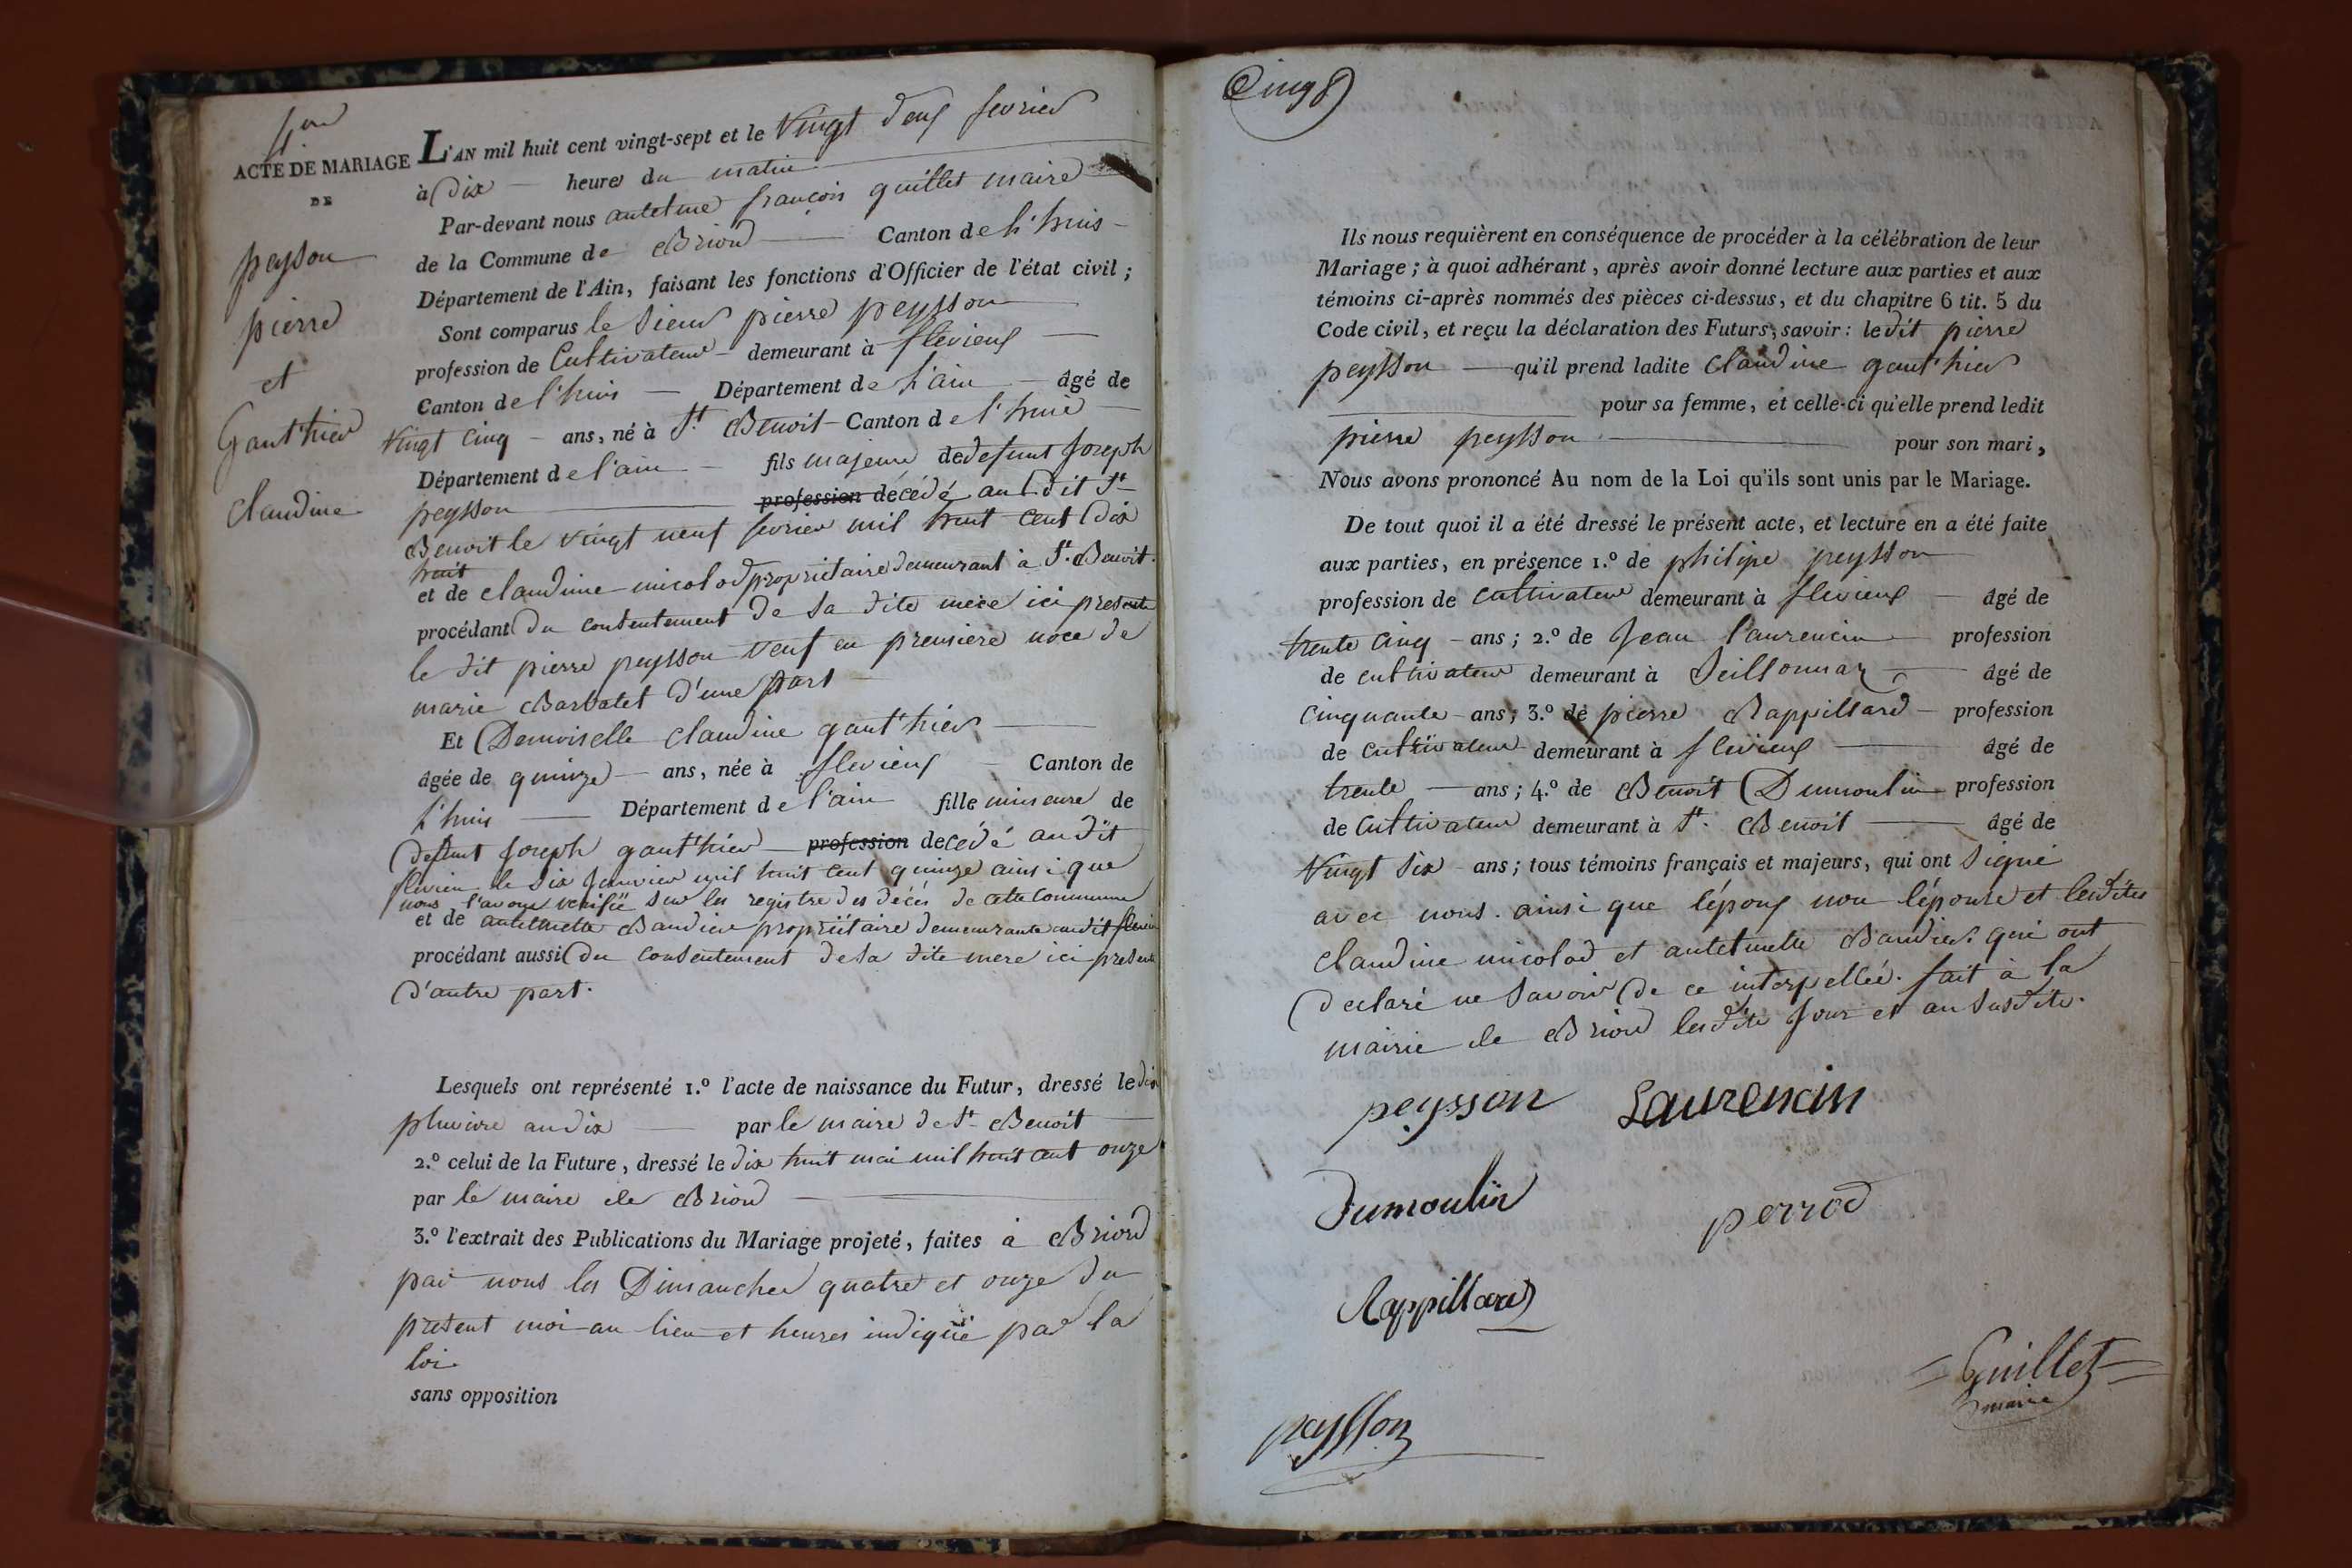 ACTE DE MARIAGE
DE
peysson
pierre
et
Gauthier
claudine
L'AN mil huit cent vingt-sept et le Vingt deux fevrier
à Dix heures du matin
Par-devant nous antelme françois guillet maire
de la Commune de Briord Canton de l'huis
Département de l'Ain, faisant les fonctions d'Officier de l'état civil ;
Sont comparus le Sieur pierre peysson
profession de Cultivateur demeurant à flevieux
Canton de l'huis Département de l'ain âgé de
Vingt Cinq ans, né à St. Benoit Canton de l'huis
Département de l'ain fils majeur de defunt Joseph
peysson profession décédé au dit St
Benoit le vingt neuf fevrier mil huit cent dix
huit
et de claudine micolod propriétaire demeurant à St. Benoit.
procédant du consentement de sa dite mere ici presente
le dit pierre peysson veuf en premiere noce de
marie Barbatet d'une part
Et Demoiselle claudine gauthier
âgée de quinze ans, née à flevieux Canton de
l'huis Département de l'ain fille mineure de
Defunt Joseph gauthier profession decédé au dit
flevieu le dix Janvier mil huit cent quinze ainsi que
nous l'avons verifié sur les registre des décès de cette Commune
et de antelmette Baudier propriétaire demeurante au dit flevieu
procédant aussi du consentement de sa dite mere ici presente
D'autre part.
Lesquels ont représenté 1.º l'acte de naissance du Futur, dressé le dix
pluviore an dix par le maire de St Benoit
2.º celui de la Future, dressé le dix huit mai mil huit cent onze
par le maire de Briord
3.º l'extrait des Publications du Mariage projeté, faites à Briord
par nous les Dimanches quatre et onze du
present moi au lieu et heures indiqué par la
loi.
sans opposition
Cinq
Ils nous requièrent en conséquence de procéder à la célébration de leur
Mariage ; à quoi adhérant, après avoir donné lecture aux parties et aux
témoins ci-après nommés des pièces ci-dessus, et du chapitre 6 tit. 5 du
Code civil, et reçu la déclaration des Futurs, savoir : le dit pierre
peysson qu'il prend ladite claudine gauthier
pour sa femme, et celle-ci qu'elle prend ledit
pierre peysson pour son mari,
Nous avons prononcé Au nom de la Loi qu'ils sont unis par le Mariage.
De tout quoi il a été dressé le présent acte, et lecture en a été faite
aux parties, en présence 1.º de philipe peysson
profession de cultivateur demeurant à flevieux âgé de
trente cinq ans ; 2.º de Jean laurencin profession
de cultivateur demeurant à Seillonnaz âgé de
Cinquante ans ; 3.º de pierre Rappillard profession
de cultivateur demeurant à flevieux âgé de
trente ans ; 4.º de Benoit Dumoulin profession
de cultivateur demeurant à St. Benoit âgé de
Vingt Six ans ; tous témoins français et majeurs, qui ont Signé
avec nous. ainsi que l'époux non l'épouse et lesdites
claudine micolod et antelmette Baudier. qui ont
declaré ne Savoir de ce interpellée. fait à la
mairie de Briord lesdite Jour et an susdite.
peysson Laurencin
Dumoulin
perrod
Rappillard
Guillet
maire
peysson